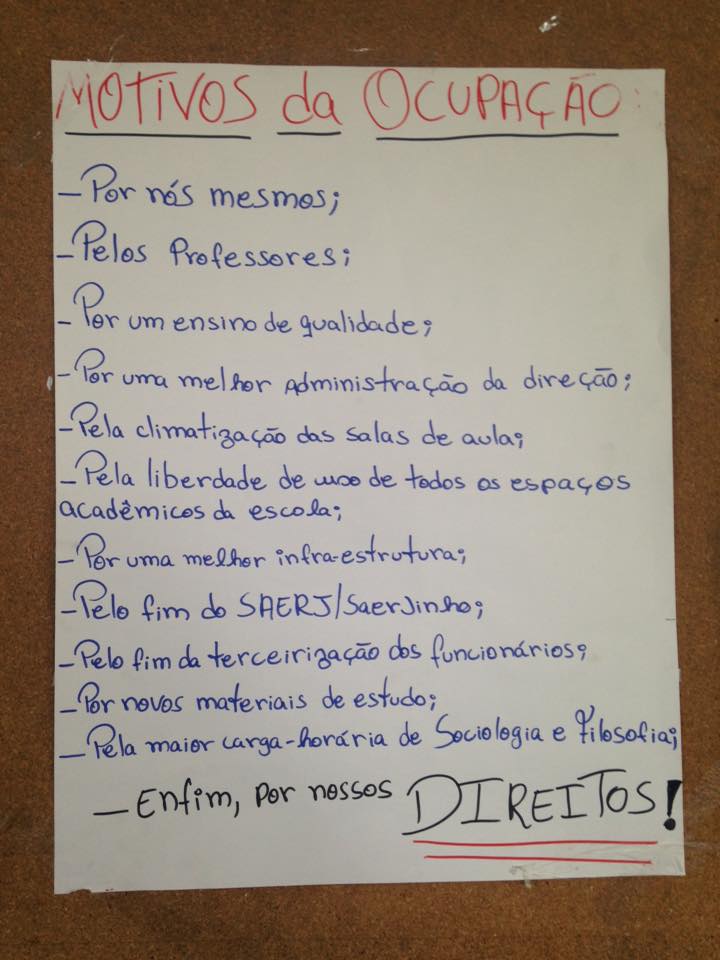 MOTIVOS da OCUPAÇÃO:
- Por nós mesmos;
- Pelos Professores;
- Por um ensino de qualidade;
- Por uma melhor administração da direção;
- Pela climatização das salas de aula;
- Pela liberdade de uso de todos os espaços
acadêmicos da escola;
- Por uma melhor infra-estrutura;
- Pelo fim do SAERJ/SaerJinho;
- Pelo fim da terceirização dos funcionários;
- Por novos materiais de estudo;
- Pela maior carga-horária de Sociologia e Filosofia;
- Enfim, por nossos DIREITOS!